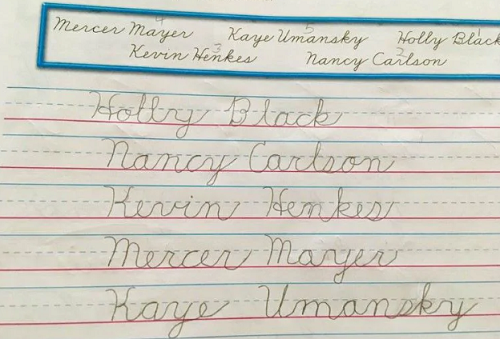 Mercer Mayer 4 Kaye Umansky 5 Holly Black 1
Kevin Henkes 3 Nancy Carlson 2
Holly Black
Nancy Carlson
Kevin Henkes
Mercer Mayer
Kaye Umansky